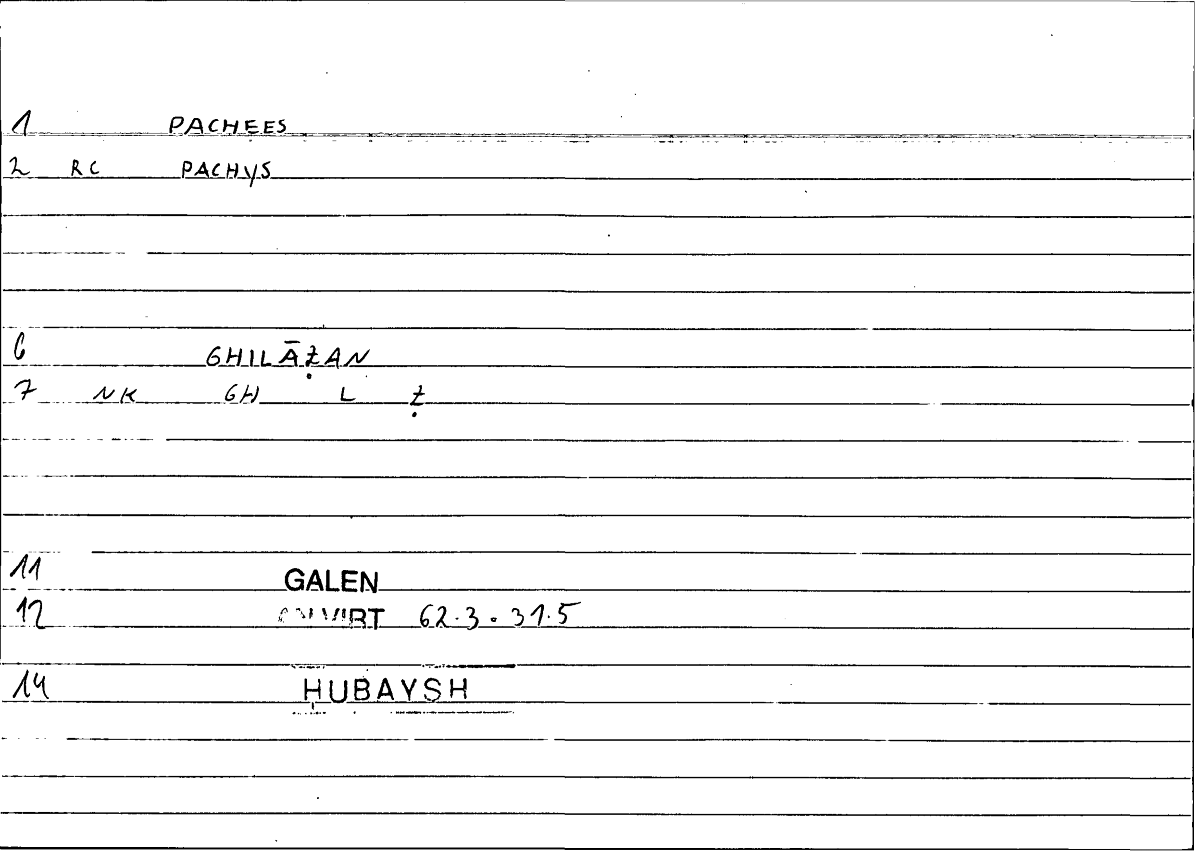 1 PACHEES
2 RC PACHYS
6 GHILĀẒAN
7 NK GH L Ẓ
11 GALEN
12 VIRT 62.3 . 31.5
14 ḤUBAYSH